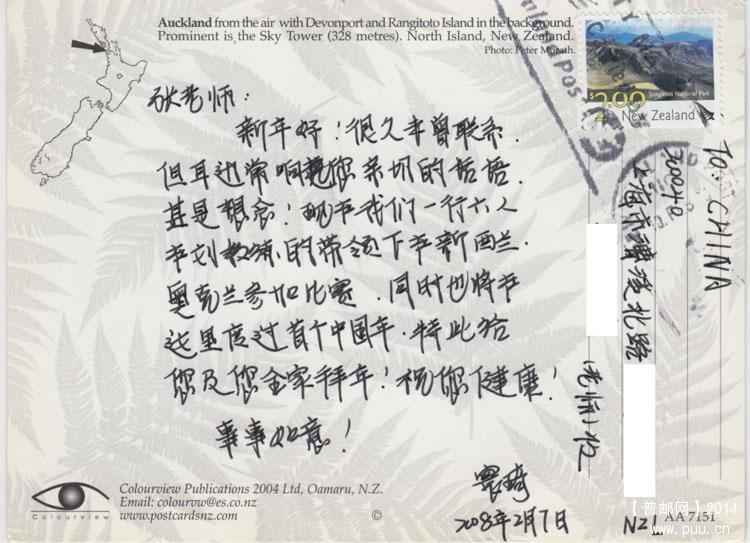 Auckland from the air with Devonport and Rangitoto Island in the background.
Prominent is the Sky Tower (328 metres). North Island, New Zealand.
Photo: Peter Morath.
张老师:
新年好!很久未曾联系.
但耳边常响起您亲切的话语.
甚是想念!现在我们一行六人
在刘教练的带领下在新西兰.
奥克兰参加比赛.同时也将在
这里度过首个中国年.特此给
您及您全家拜年!祝您健康!
事事如意!
2008年2月7日
$2.00
Tongariro National Park
New Zealand
TO: CHINA
200040
上海市 北路
Colourview
Colourview Publications 2004 Ltd, Oamaru, N.Z.
Email: colourvw@es.co.nz
www.postcardsnz.com
©
NZ1
AA7151
【普邮网】2014
www.puu.cn